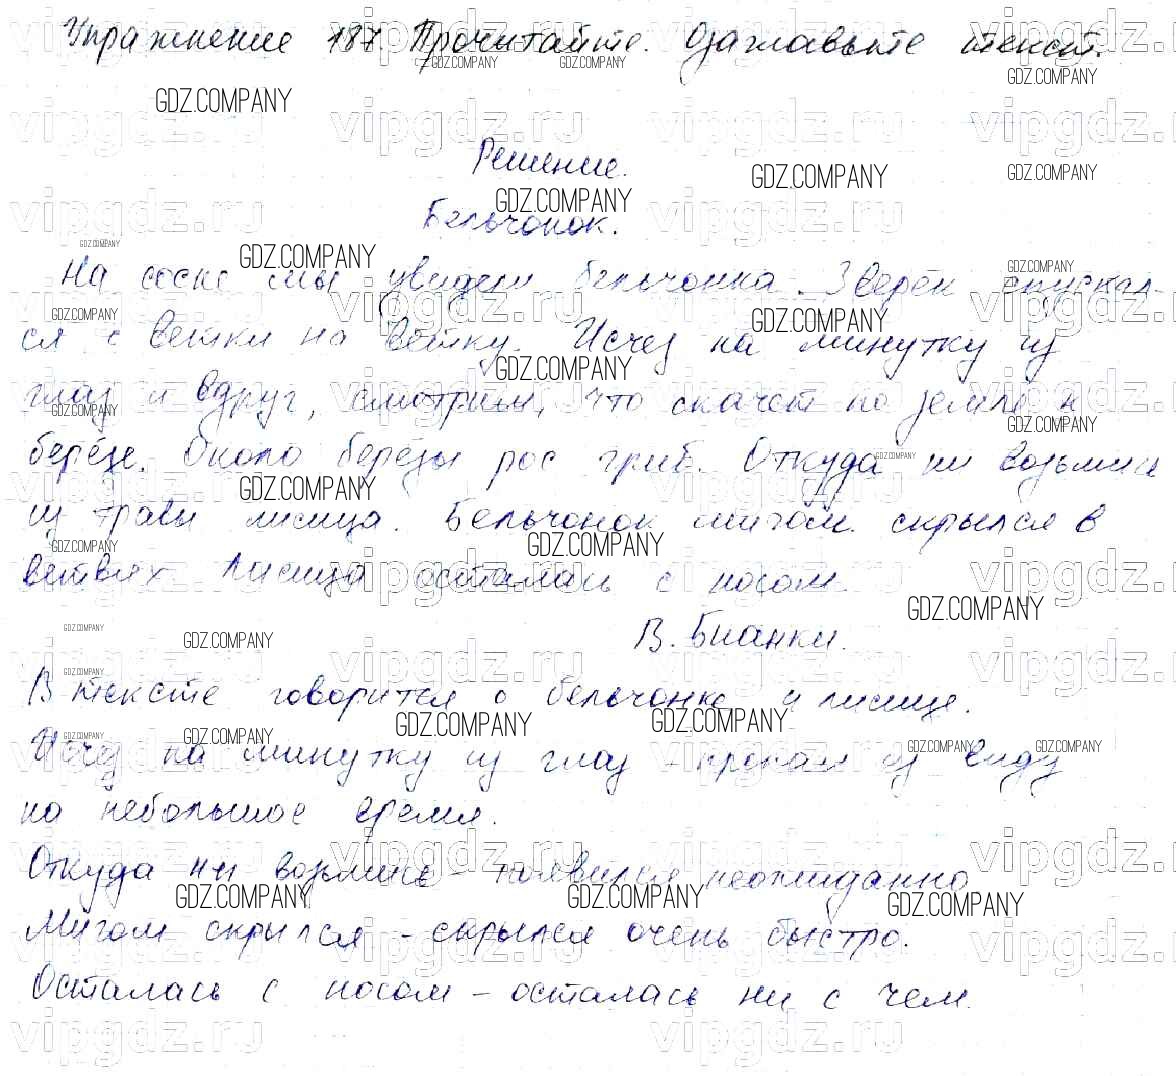 Упражнение 187. Прочитайте. Озаглавьте текст.
Решение.
Бельчонок.
На сосне мы увидели бельчонка. Зверёк спускал-
ся с ветки на ветку. Исчез на минутку из
глаз и вдруг, смотрим, что скачет по земле к
берёзе. Около берёзы рос гриб. Откуда ни возьмись
из травы лисица. Бельчонок мигом скрылся в
ветвях. Лисица осталась с носом.
В. Бианки.
В тексте говорится о бельчонке и лисице.
Исчез на минутку из глаз - пропал из виду
на небольшое время.
Откуда ни возьмись - появился неожиданно
Мигом скрылся - скрылся очень быстро.
Осталась с носом - осталась ни с чем.
GDZ.COMPANY
vipgdz.ru